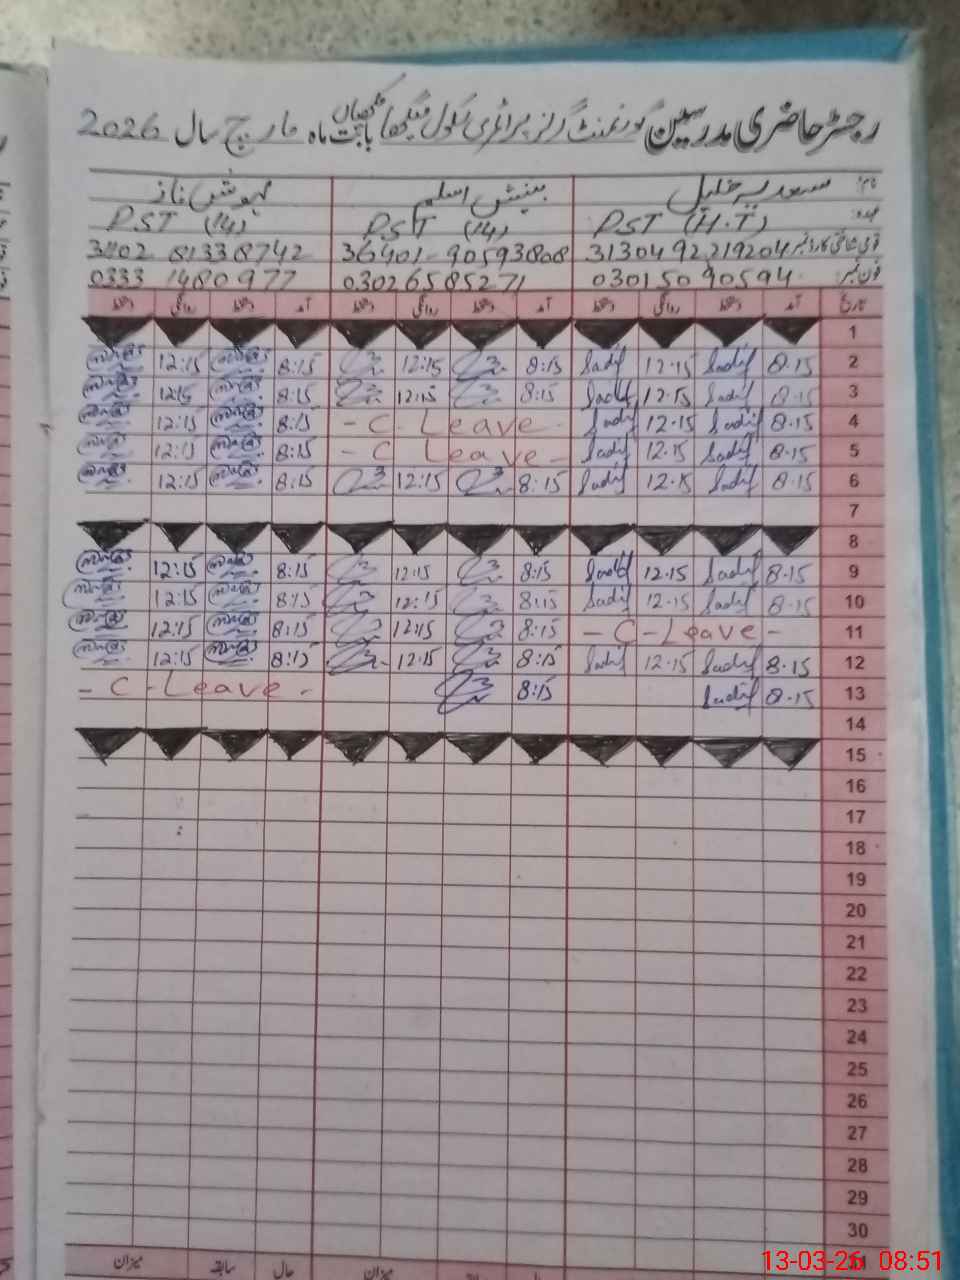 رجسٹر حاضری مدرسین گورنمنٹ گرلز پرائمری سکول بابت ماہ مارچ سال 2026
نام: سعدیہ خلیل بینش اسلم مہوش ناز
عہدہ: PST (H.T) PST (14) PST (14)
قومی شناختی کارڈ نمبر 31304 92 219204 36401-90593808 8133 8742
فون نمبر: 0301 50 90594 0302 6585271 0333 1480977
تاریخ آمد دستخط روانگی دستخط آمد دستخط روانگی دستخط آمد دستخط روانگی دستخط
1
2 8.15 Sadif 12.15 Sadif 8:15 12:15 8:15 12:15
3 8.15 Sadif 12.15 Sadif 8:15 12:15 8:15 12:15
4 8.15 Sadif 12.15 Sadif - C Leave - 8:15 12:15
5 8.15 Sadif 12.15 Sadif - C Leave - 8:15 12:15
6 8.15 Sadif 12.15 Sadif 8:15 12:15 8:15 12:15
7
8
9 8.15 Sadif 12.15 Sadif 8:15 12:15 8:15 12:15
10 8.15 Sadif 12.15 Sadif 8:15 12:15 8:15 12:15
11 - C - Leave - 8:15 12:15 8:15 12:15
12 8.15 Sadif 12.15 Sadif 8:15 12:15 8:15 12:15
13 8.15 Sadif 8:15 - C - Leave -
14
15
16
17
18
19
20
21
22
23
24
25
26
27
28
29
30
حال سابقہ میزان میزان
13-03-26 08:51